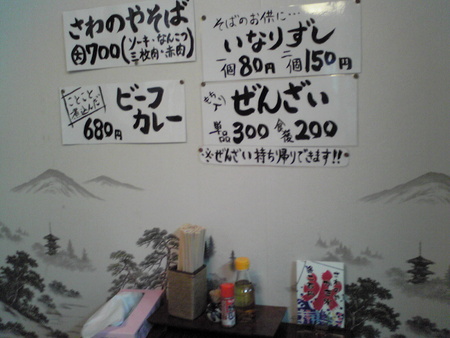 さわのやそば
大700(ソーキ・なんこつ
三枚肉・赤肉)
そばのお供に…
いなりずし
一個80円 二個150円
ことこと
煮込んだ
ビーフ
カレー
680円
もち入り
ぜんざい
単品300 食後200
※ぜんざい持ち帰りできます!!